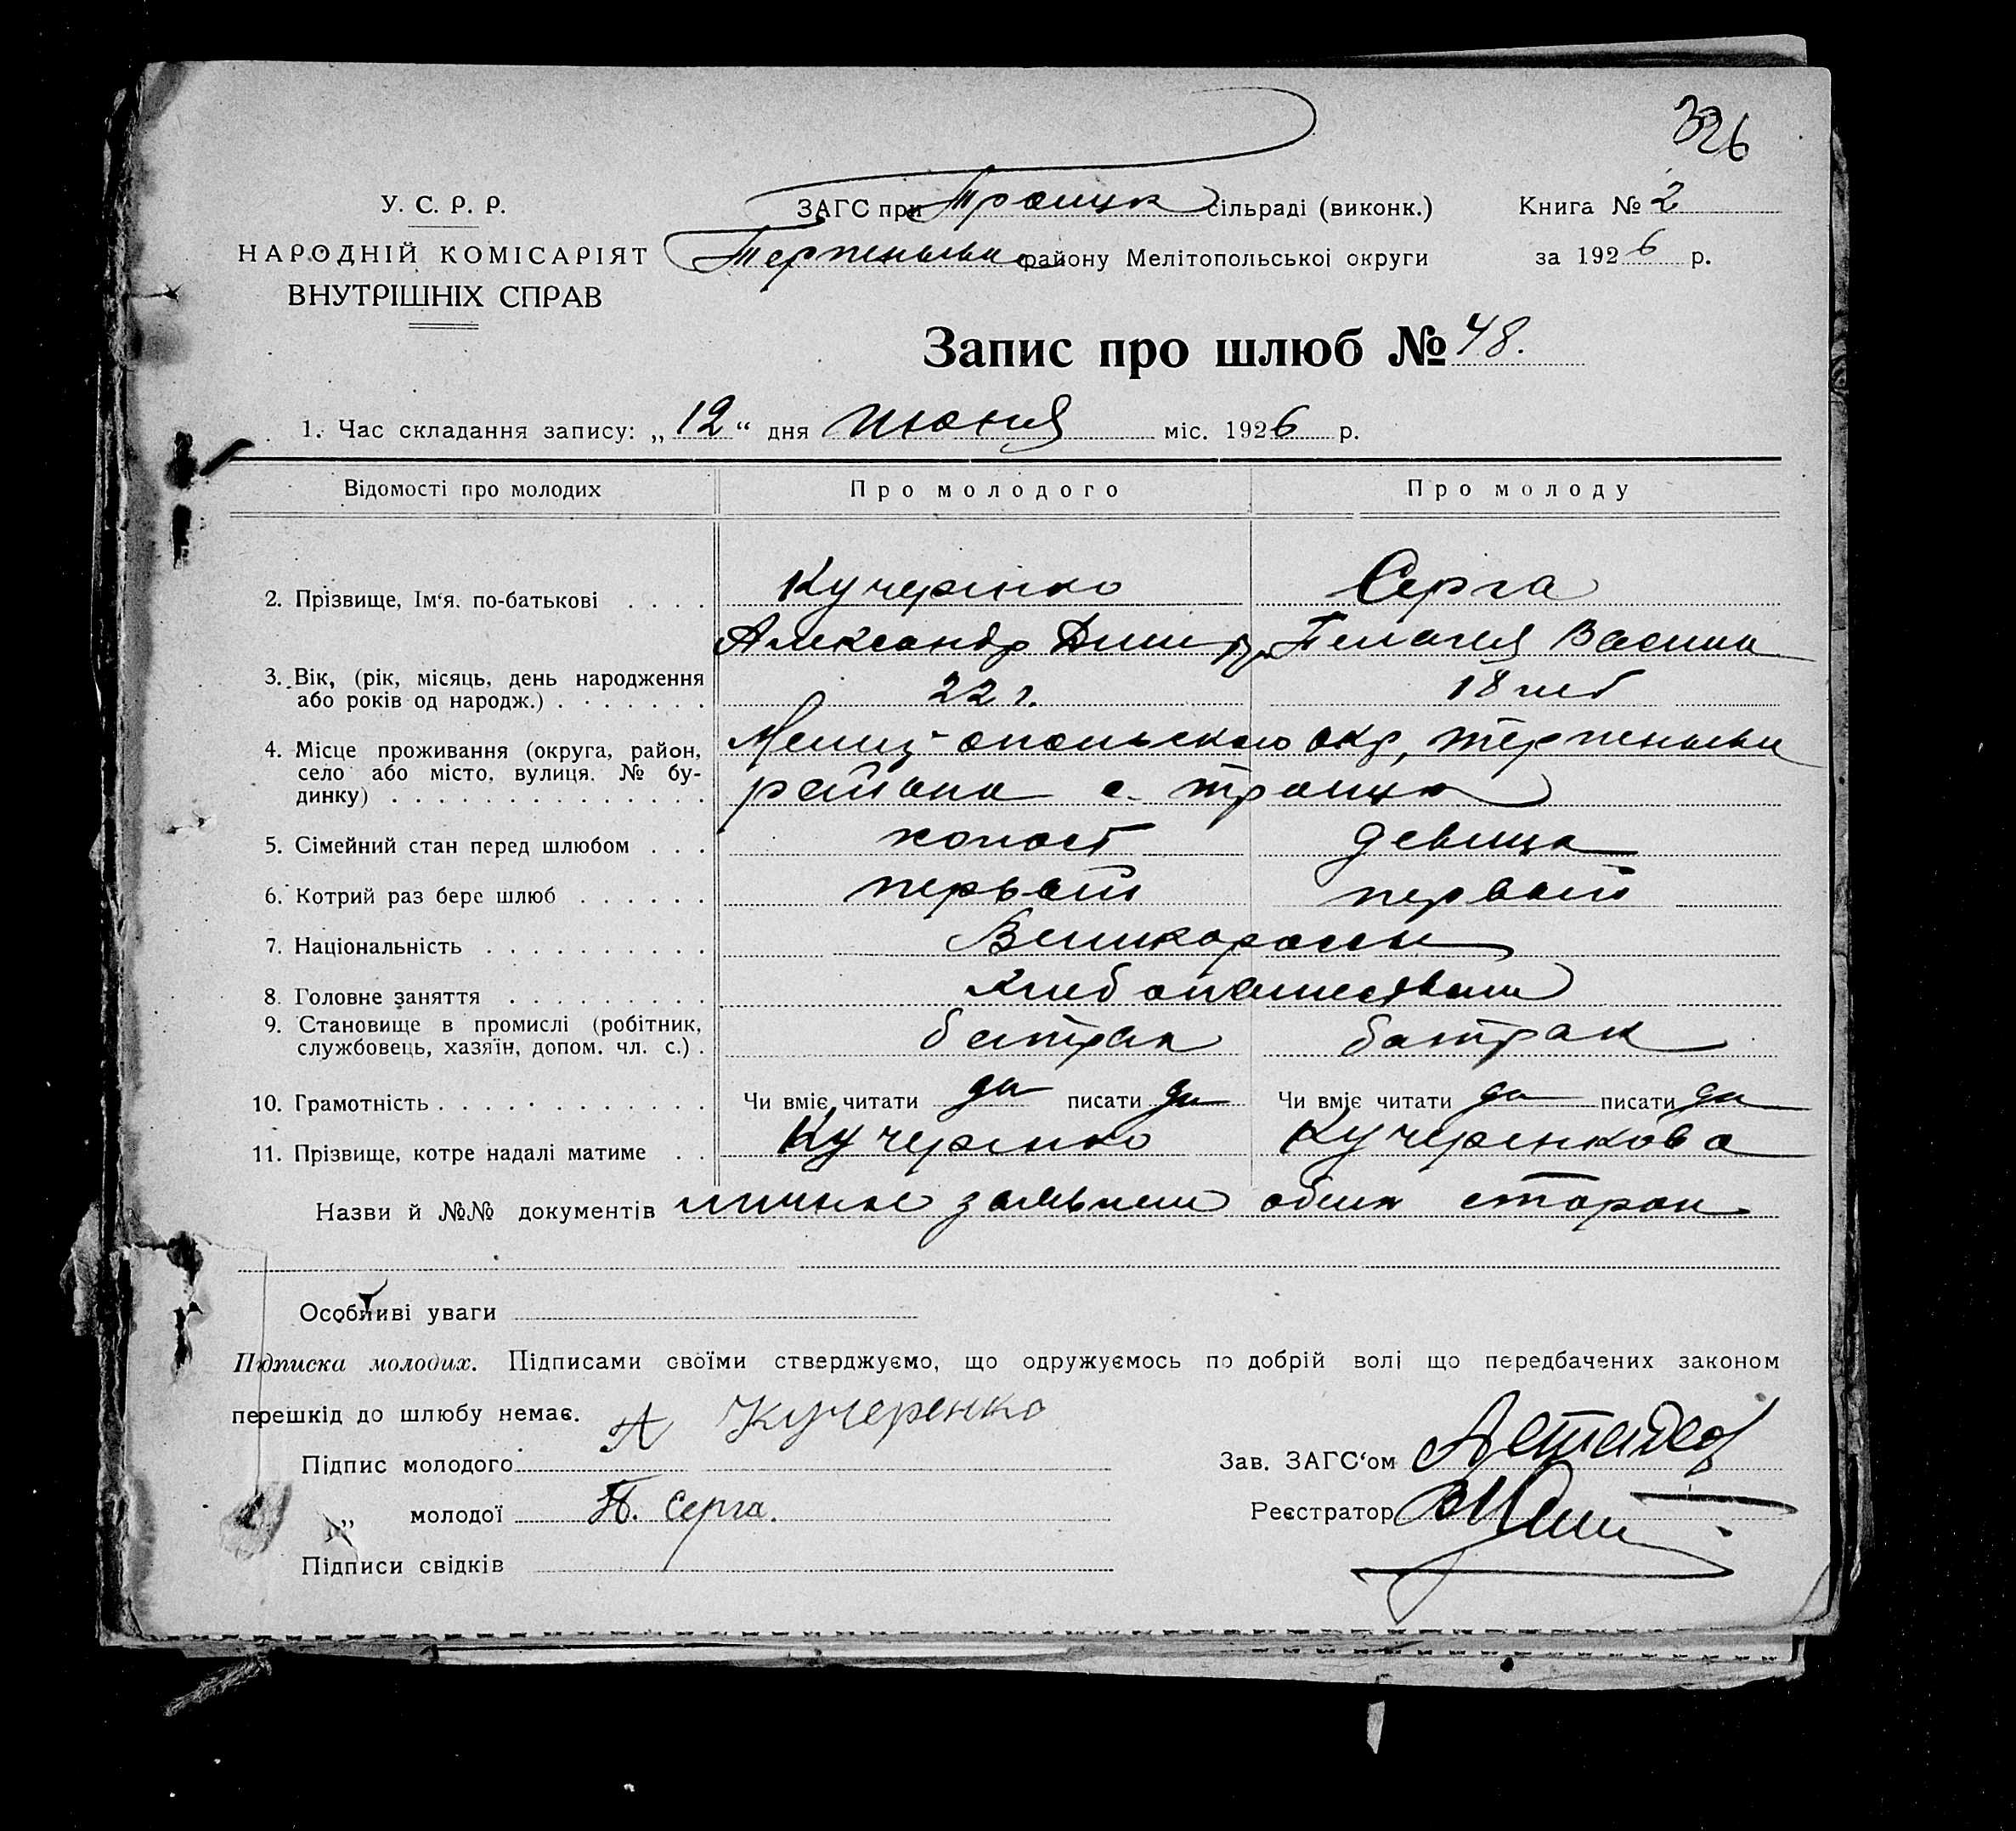 326
У. С. Р. Р.
НАРОДНІЙ КОМІСАРІЯТ
ВНУТРІШНІХ СПРАВ
ЗАГС при Троицк сільраді (виконк.)
Терпеньевск району Мелітопольської округи
Книга № 2
за 1926 р.
Запис про шлюб № 48.
1. Час складання запису: „12“ дня июня міс. 1926 р.
Відомості про молодих Про молодого Про молоду
2. Прізвище, Ім‘я. по-батькові . . . . Кучеренко Серга
Александр Дмитр Пелагея Васили
3. Вік, (рік, місяць, день народження або років од народж.) . . . . . . . 22 г. 18 лет
4. Місце проживання (округа, район, село або місто, вулиця. № будинку) . . . . . . . . . . . . . . Мелитопольского окр, терпеньевск
района с. троицк
5. Сімейний стан перед шлюбом . . . холост девица
6. Котрий раз бере шлюб . . . . . . первый первый
7. Національність . . . . . . . . . . Великороссы
8. Головне заняття . . . . . . . . . Хлебопашеством
9. Становище в промислі (робітник, службовець, хазяїн, допом. чл. с.) . батрак батрак
10. Грамотність . . . . . . . . . . . . . Чи вміє читати да писати да Чи вміє читати да писати да
11. Прізвище, котре надалі матиме . . Кучеренко Кучеренкова
Назви й №№ документів личные заявлен обеих сторон
Особливі уваги
Підписка молодих. Підписами своїми стверджуємо, що одружуємось по добрій волі що передбачених законом
перешкід до шлюбу немає.
Підпис молодого А Кучеренко
„ молодої П. Серга.
Підписи свідків
Зав. ЗАГС‘ом
Реєстратор